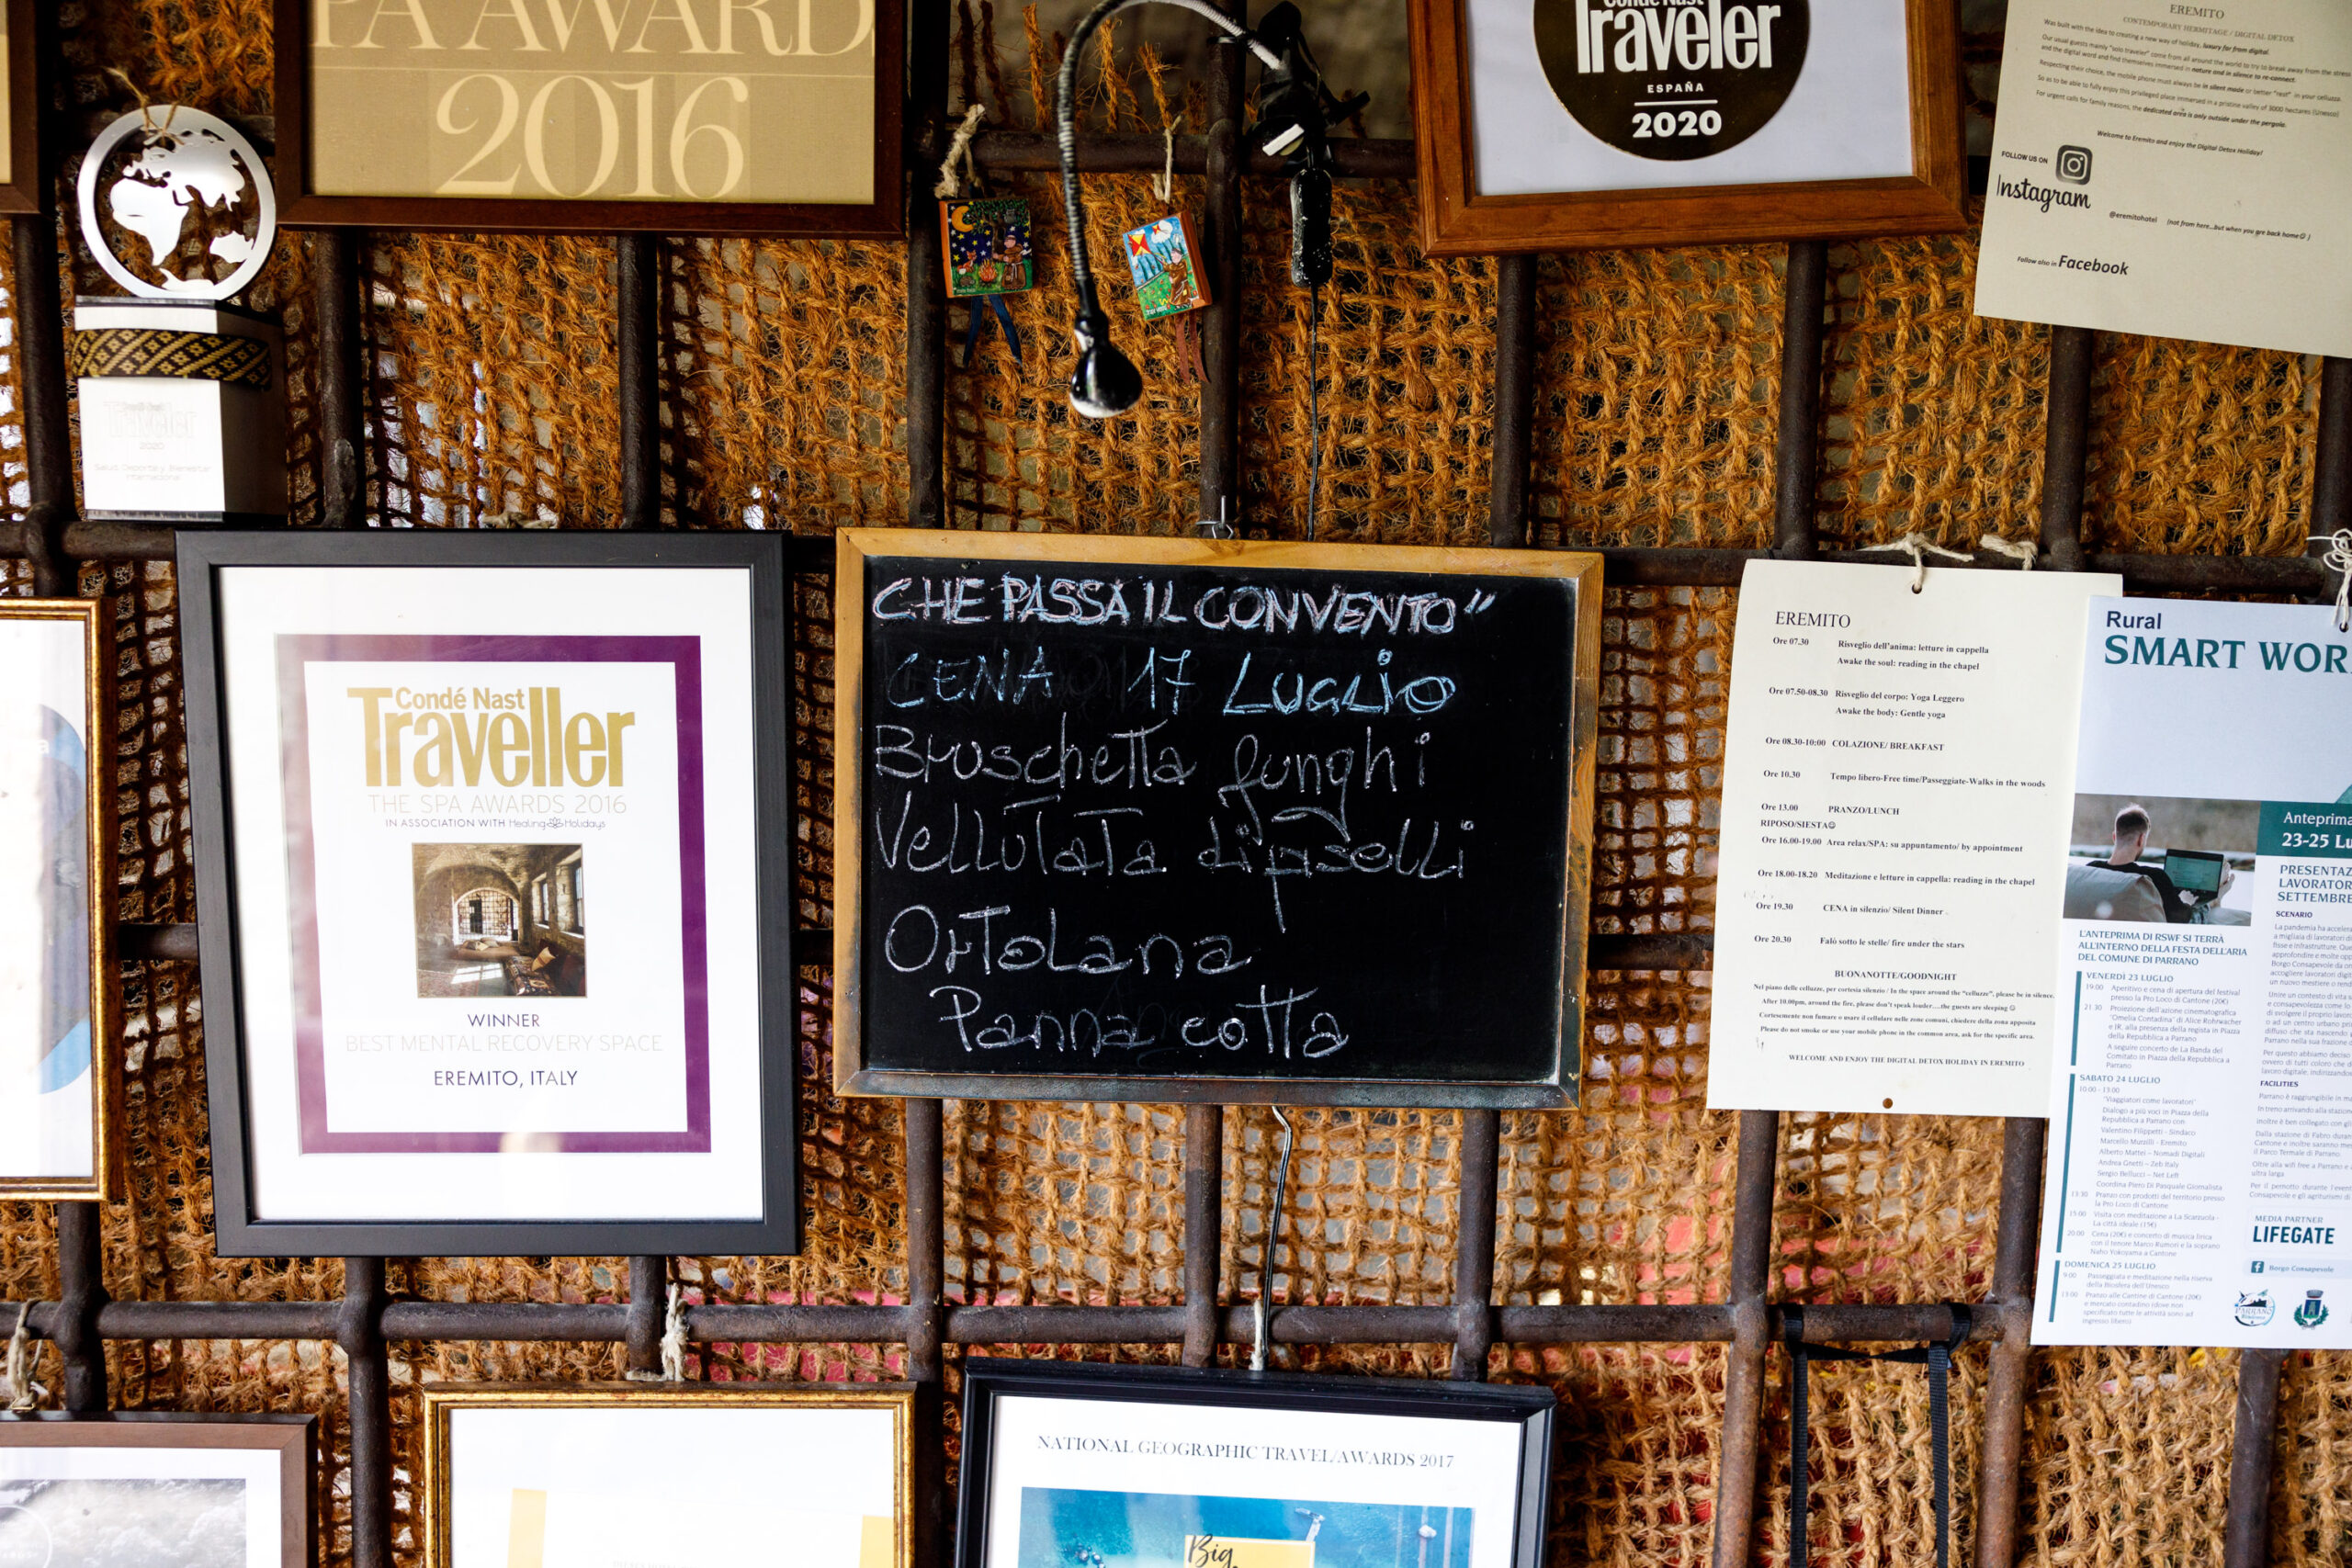 PA AWARD
2016
Condé Nast
Traveler
ESPAÑA
2020
EREMITO
CONTEMPORARY HERMITAGE / DIGITAL DETOX
Was built with the idea to creating a new way of holiday, luxury far from digital.
Our usual guests mainly "solo traveler" come from all around the world to try to break away from the stress
and the digital word and find themselves immersed in nature and in silence to re-connect.
Respecting their choice, the mobile phone must always be in silent mode or better "rest" in your celluzza.
So as to be able to fully enjoy this privileged place immersed in a pristine valley of 3000 hectares (Unesco)
For urgent calls for family reasons, the dedicated area is only outside under the pergola.
Welcome to Eremito and enjoy the Digital Detox Holiday!
FOLLOW US ON
Instagram
@eremitohotel (not from here...but when you are back home☺)
Follow also in Facebook
Traveler
2020
Salud, Deporte y Bienestar
Internacional
Condé Nast
Traveller
THE SPA AWARDS 2016
IN ASSOCIATION WITH Healing Holidays
WINNER
BEST MENTAL RECOVERY SPACE
EREMITO, ITALY
CHE PASSA IL CONVENTO"
CENA 17 LUGLIO
Bruschetta funghi
Vellutata di piselli
Ortolana
Panna cotta
EREMITO
Ore 07.30 Risveglio dell'anima: letture in cappella
Awake the soul: reading in the chapel
Ore 07.50-08.30 Risveglio del corpo: Yoga Leggero
Awake the body: Gentle yoga
Ore 08.30-10:00 COLAZIONE/ BREAKFAST
Ore 10.30 Tempo libero-Free time/Passeggiate-Walks in the woods
Ore 13.00 PRANZO/LUNCH
RIPOSO/SIESTA☺
Ore 16.00-19.00 Area relax/SPA: su appuntamento/ by appointment
Ore 18.00-18.20 Meditazione e letture in cappella: reading in the chapel
Ore 19.30 CENA in silenzio/ Silent Dinner
Ore 20.30 Falò sotto le stelle/ fire under the stars
BUONANOTTE/GOODNIGHT
Nel piano delle celluzze, per cortesia silenzio / In the space around the "celluzze", please be in silence.
After 10.00pm, around the fire, please don't speak louder....the guests are sleeping ☺
Cortesemente non fumare o usare il cellulare nelle zone comuni, chiedere della zona apposita
Please do not smoke or use your mobile phone in the common area, ask for the specific area.
WELCOME AND ENJOY THE DIGITAL DETOX HOLIDAY IN EREMITO
Rural
SMART WOR
Anteprima
23-25 Lu
L'ANTEPRIMA DI RSWF SI TERRÀ
ALL'INTERNO DELLA FESTA DELL'ARIA
DEL COMUNE DI PARRANO
VENERDÌ 23 LUGLIO
19:00 Aperitivo e cena di apertura del festival
presso la Pro Loco di Cantone (20€)
21:30 Proiezione dell'azione cinematografica
"Omelia Contadina" di Alice Rohrwacher
e JR, alla presenza della regista in Piazza
della Repubblica a Parrano
A seguire concerto de La Banda del
Comitato in Piazza della Repubblica a
Parrano
SABATO 24 LUGLIO
10:00 - 13:00
"Viaggiatori come lavoratori"
Dialogo a più voci in Piazza della
Repubblica a Parrano con
Valentino Filippetti - Sindaco
Marcello Murzilli - Eremito
Alberto Mattei - Nomadi Digitali
Andrea Gnetti - Zeb Italy
Sergio Bellucci - Net Left
Coordina Piero Di Pasquale Giornalista
13:30 Pranzo con prodotti del territorio presso
la Pro Loco di Cantone
15:00 Visita con meditazione a La Scarzuola -
La città ideale (15€)
20:00 Cena (20€) e concerto di musica lirica
con il tenore Marco Rumori e la soprano
Naho Yokoyama a Cantone
DOMENICA 25 LUGLIO
9:00 Passeggiata e meditazione nella riserva
della Biosfera dell'Unesco
13:00 Pranzo alle Cantine di Cantone (20€)
e mercato contadino (dove non
specificato tutte le attività sono ad
ingresso libero)
PRESENTAZ
LAVORATOR
SETTEMBRE
SCENARIO
FACILITIES
MEDIA PARTNER
LIFEGATE
Borgo Consapevole
NATIONAL GEOGRAPHIC TRAVEL/AWARDS 2017
Big